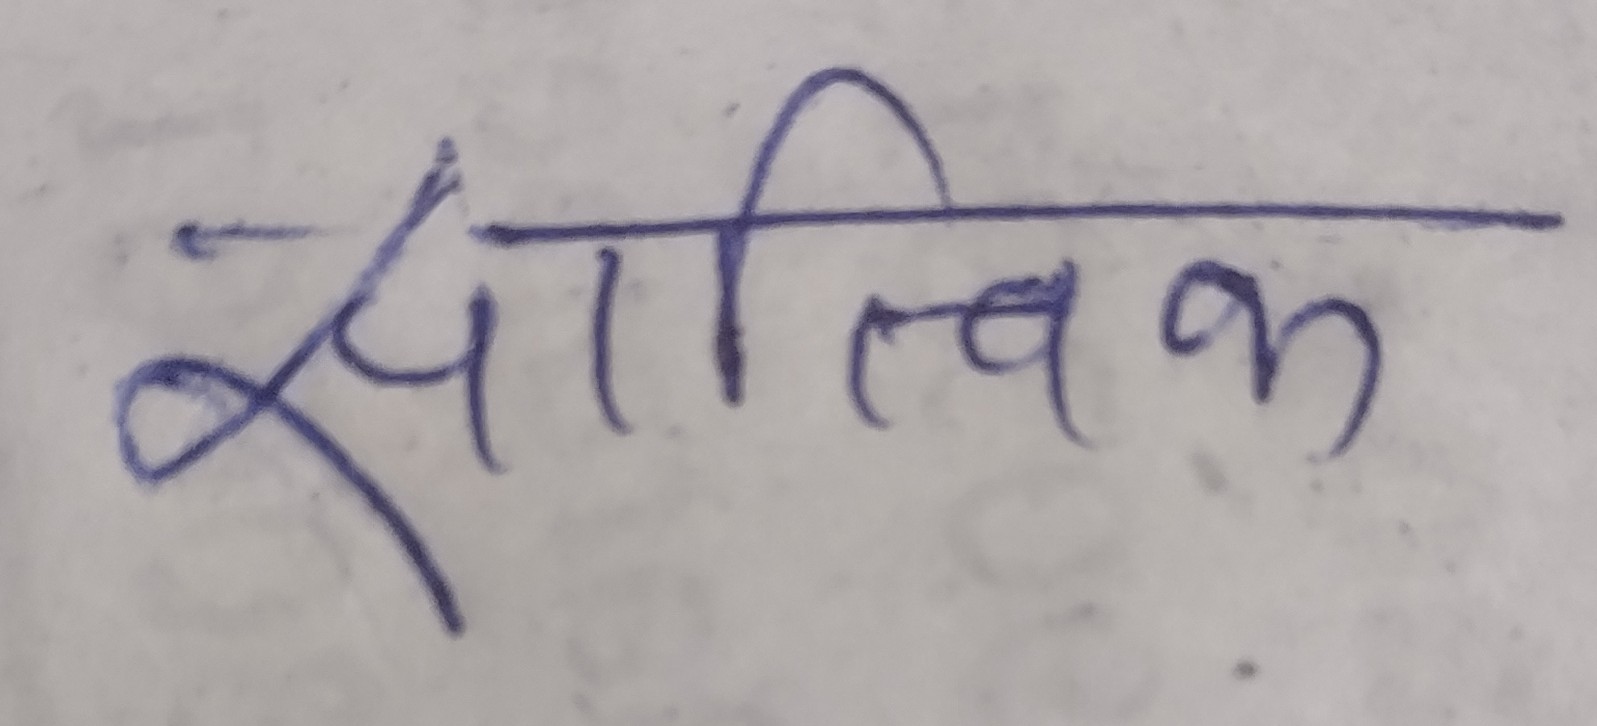 सात्विक